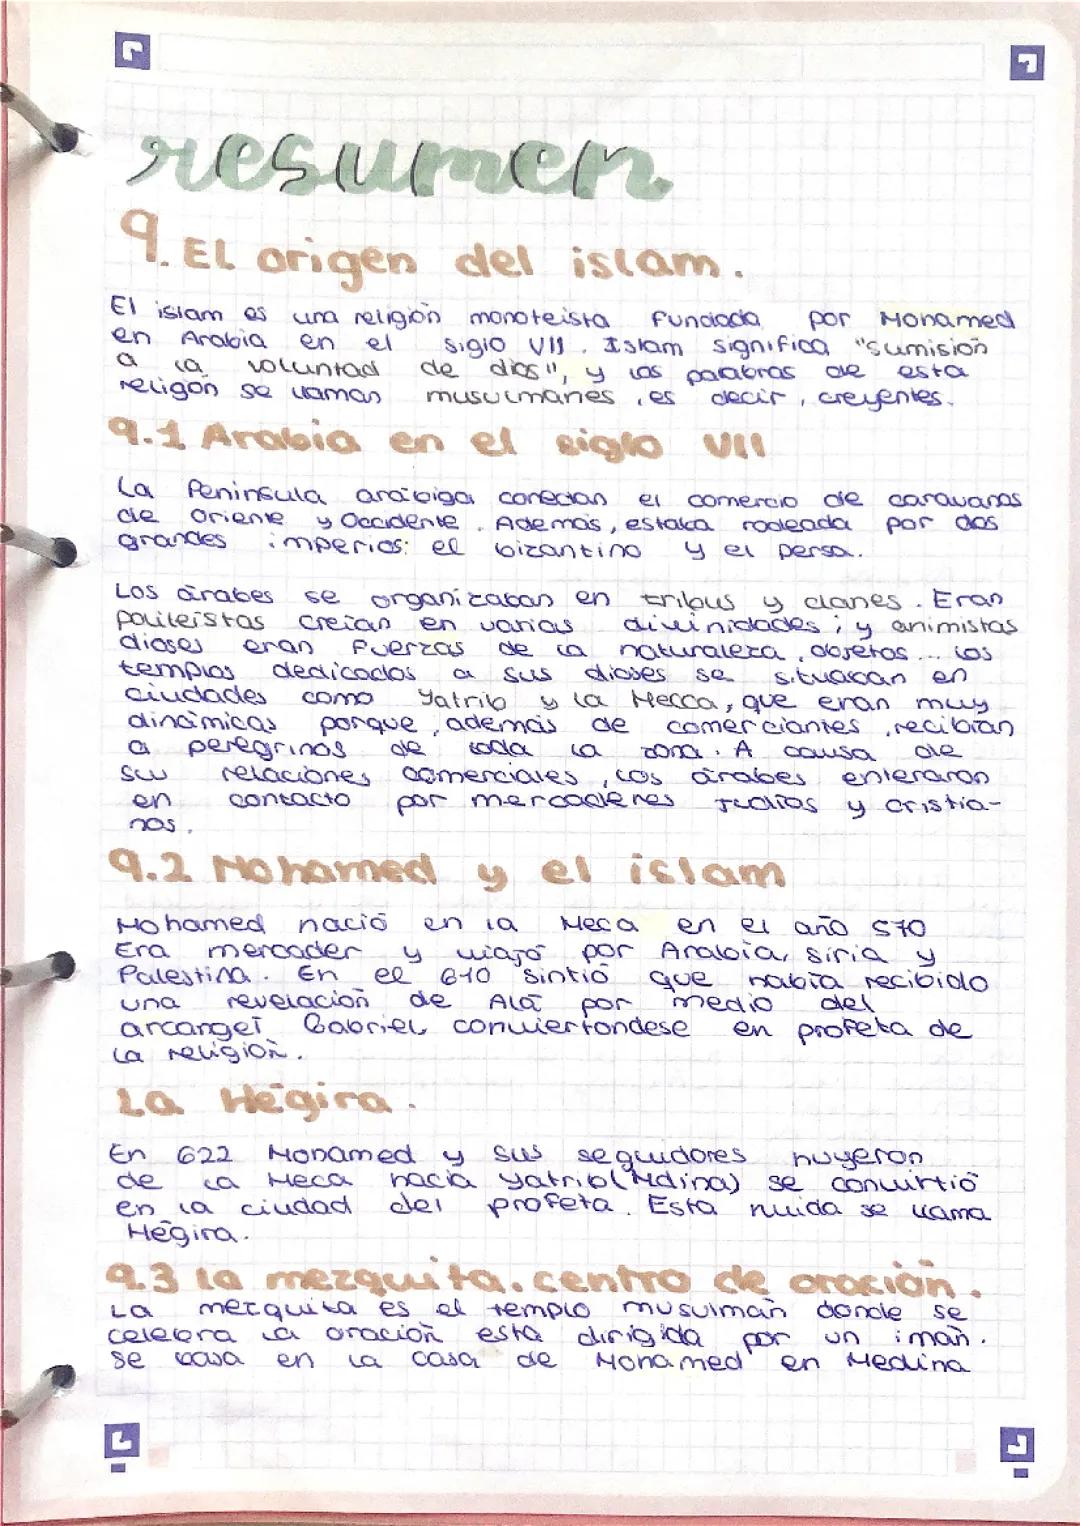 resumen
9. EL origen del islam.
El islam es una religión monoteista fundada por Mohamed
en Arabia en el siglo VII. Islam significa "sumisión
a la voluntad de dios", y las palabras de esta
religón se llaman musulmanes, es decir, creyentes.
9.1 Arabia en el siglo VII
La Península arábiga conectan el comercio de caravanas
de Oriente y Occidente. Además, estaba rodeada por dos
grandes imperios: el bizantino y el persa.
Los árabes se organizaban en tribus y clanes. Eran
politeistas creían en varias diviinidades; y animistas
dioses eran fuerzas de la naturaleza, objetos... los
templos dedicados a sus dioses se situaban en
ciudades como Yatrib y la Mecca, que eran muy
dinámicas porque, además de comerciantes, recibían
a peregrinos de toda la zona. A causa de
sus relaciones comerciales, los árabes enteraron
en contacto por mercaderes judíos y cristia-
nos.
9.2 Mohamed y el islam
Mohamed nació en la Meca en el año 570
Era mercader y viajó por Arabia, siria y
Palestina. En el 610 sintió que había recibido
una revelación de Alá por medio del
arcangel Gabriel conviertondese en profeta de
la religión.
La Hégira.
En 622 Mohamed y sus seguidores huyeron
de la Meca hacia Yatrib (Mdina) se convirtió
en la ciudad del profeta. Esta huida se llama
Hégira.
9.3 la mezquita. centro de oración.
La mezquita es el templo musulmán donde se
celebra la oración está dirigida por un imán.
Se basa en la casa de Mohamed en Medina